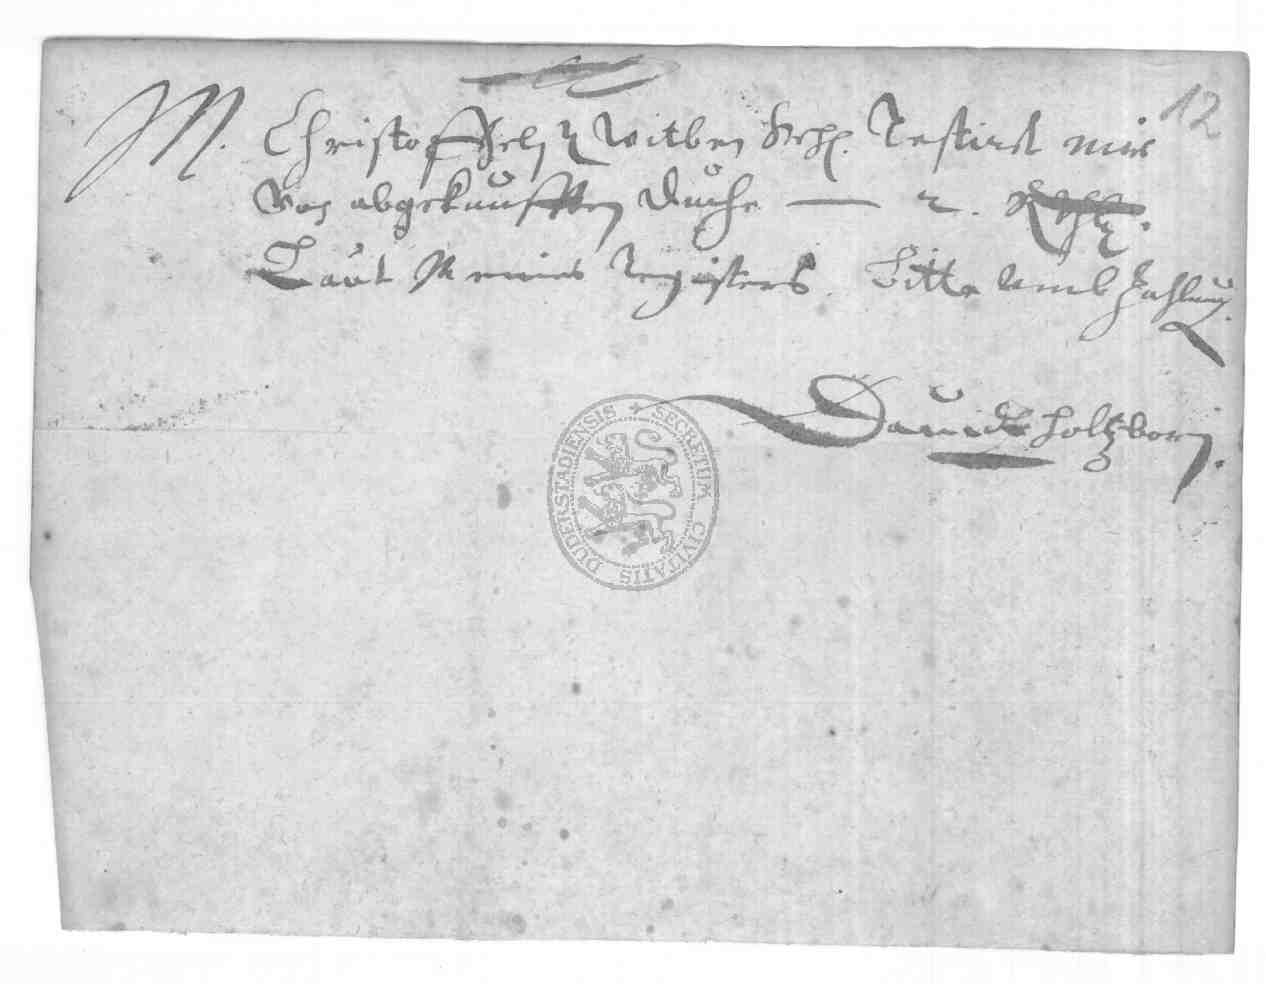 12
M. Christoffel Witben Restiret mir
Von abgekaufften Duche — 2. Rthlr.
Laut Meines Registers. Bitte umb Zahlung.
Dauidt Holtzborn.
SECRETUM CIVITATIS DUDERSTADIENSIS